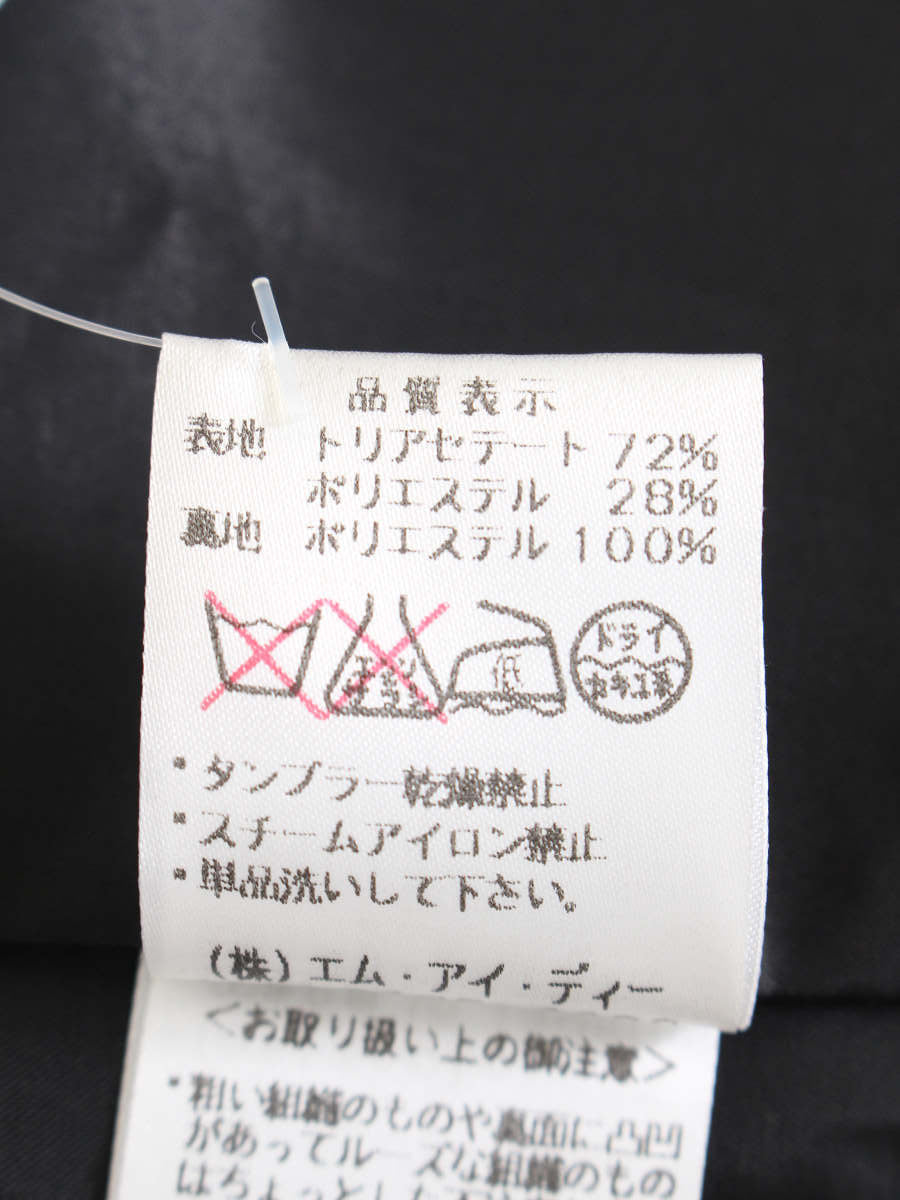 品質表示
表地 トリアセテート 72%
ポリエステル 28%
裏地 ポリエステル 100%
エンソ
サラシ
低
ドライ
セキユ系
・タンブラー乾燥禁止
・スチームアイロン禁止
・単品洗いして下さい。
(株)エム・アイ・ディー
<お取り扱い上の御注意>
・粗い組織のものや裏面に凸凹
があってルーズな組織のもの
はちょっとした